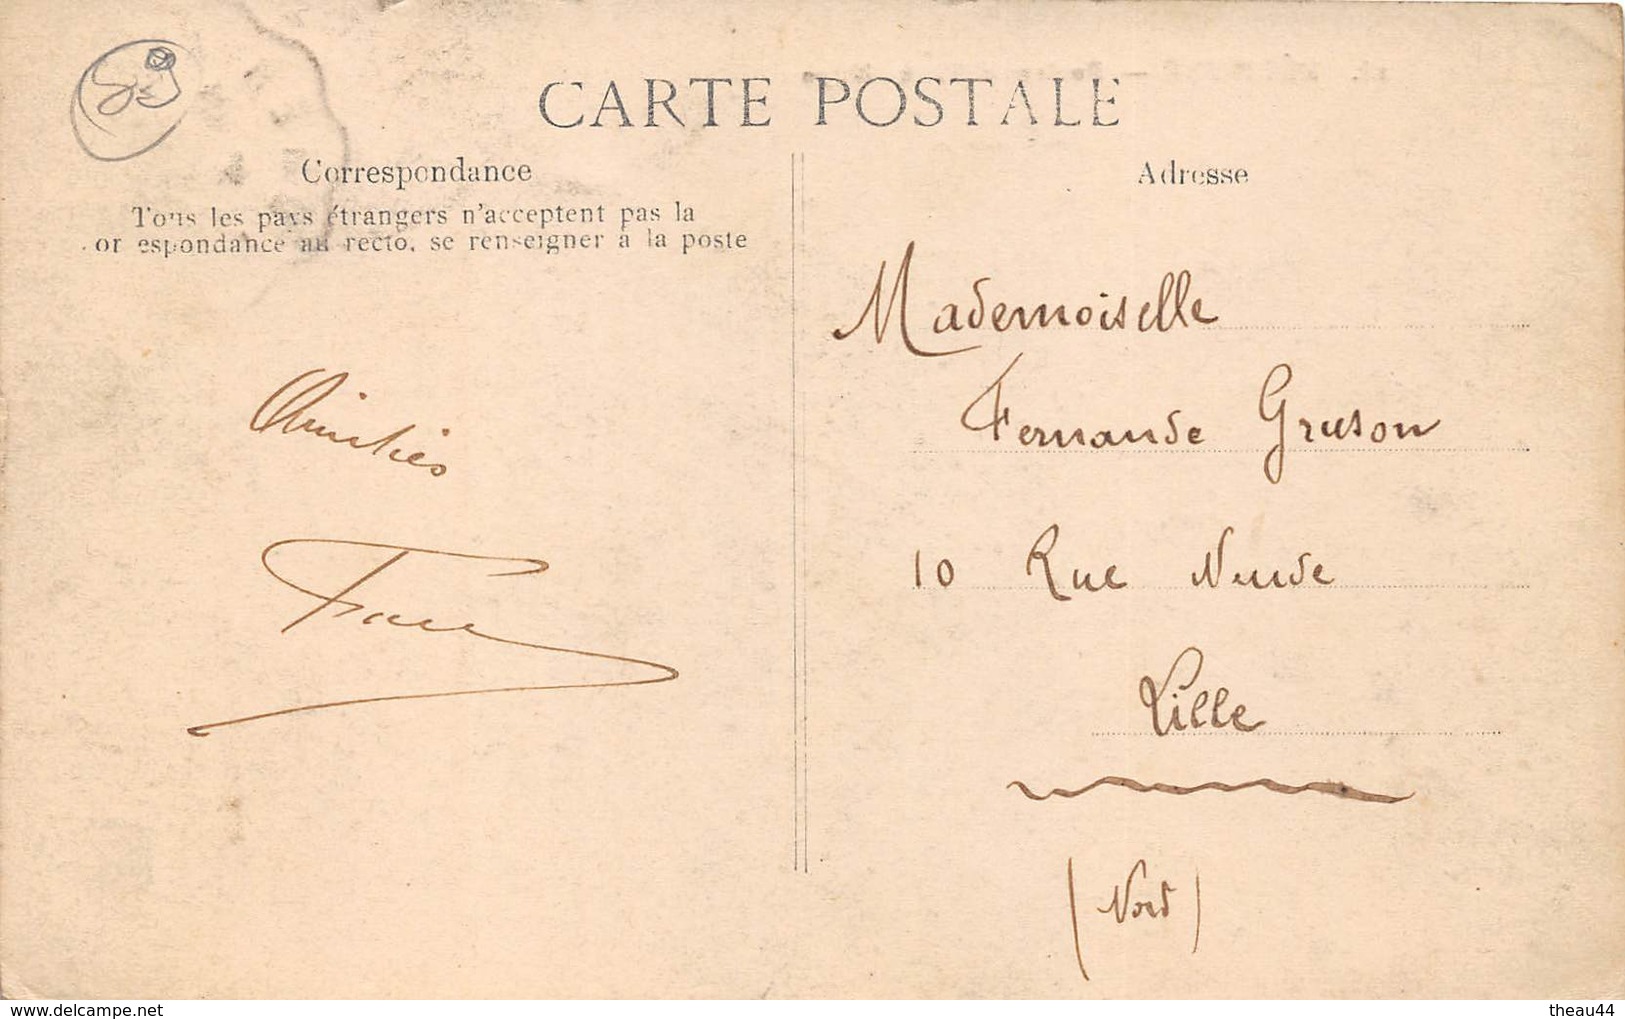 CARTE POSTALE
Correspondance
Tous les pays étrangers n'acceptent pas la
or espondance au recto, se renseigner a la poste
Amitiés
Adresse
Mademoiselle
Fernande Gruson
10 Rue Neuve
Lille
(Nord)
www.delcampe.net
theau44